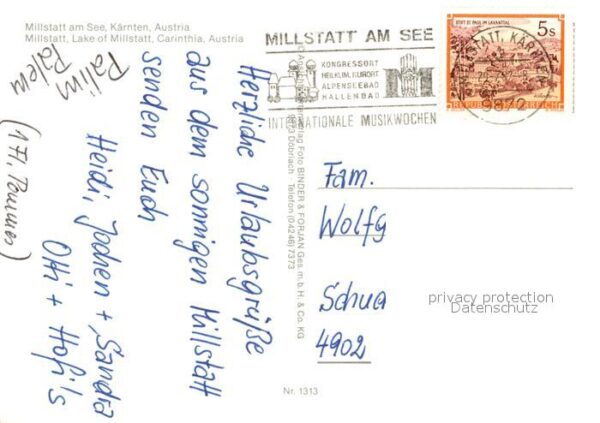 Millstatt am See, Kärnten, Austria
Millstatt, Lake of Millstatt, Carinthia, Austria
Herzliche Urlaubsgrüße
aus dem sonnigen Millstatt
senden Euch
Heidi, Jochen + Sandra
Otti + Hofi's
Palim
Palem
MILLSTATT AM SEE
KONGRESSORT
HEILKLIM. KURORT
ALPENSEEBAD
HALLENBAD
INTERNATIONALE MUSIKWOCHEN
STIFT ST. PAUL IM LAVANTTAL
5s
REPUBLIK ÖSTERREICH
MILLSTATT, KÄRNTEN
9872
Foto BINDER & FORJAN Ges. m. b. H. & Co. KG
Döbriach - Telefon (04246) 7373
Fam.
Wolfg
Schua
4902
privacy protection
Datenschutz
Nr. 1313